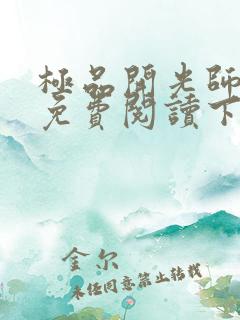 極品開光師
免費閱讀下
金尔
未经同意禁止转载